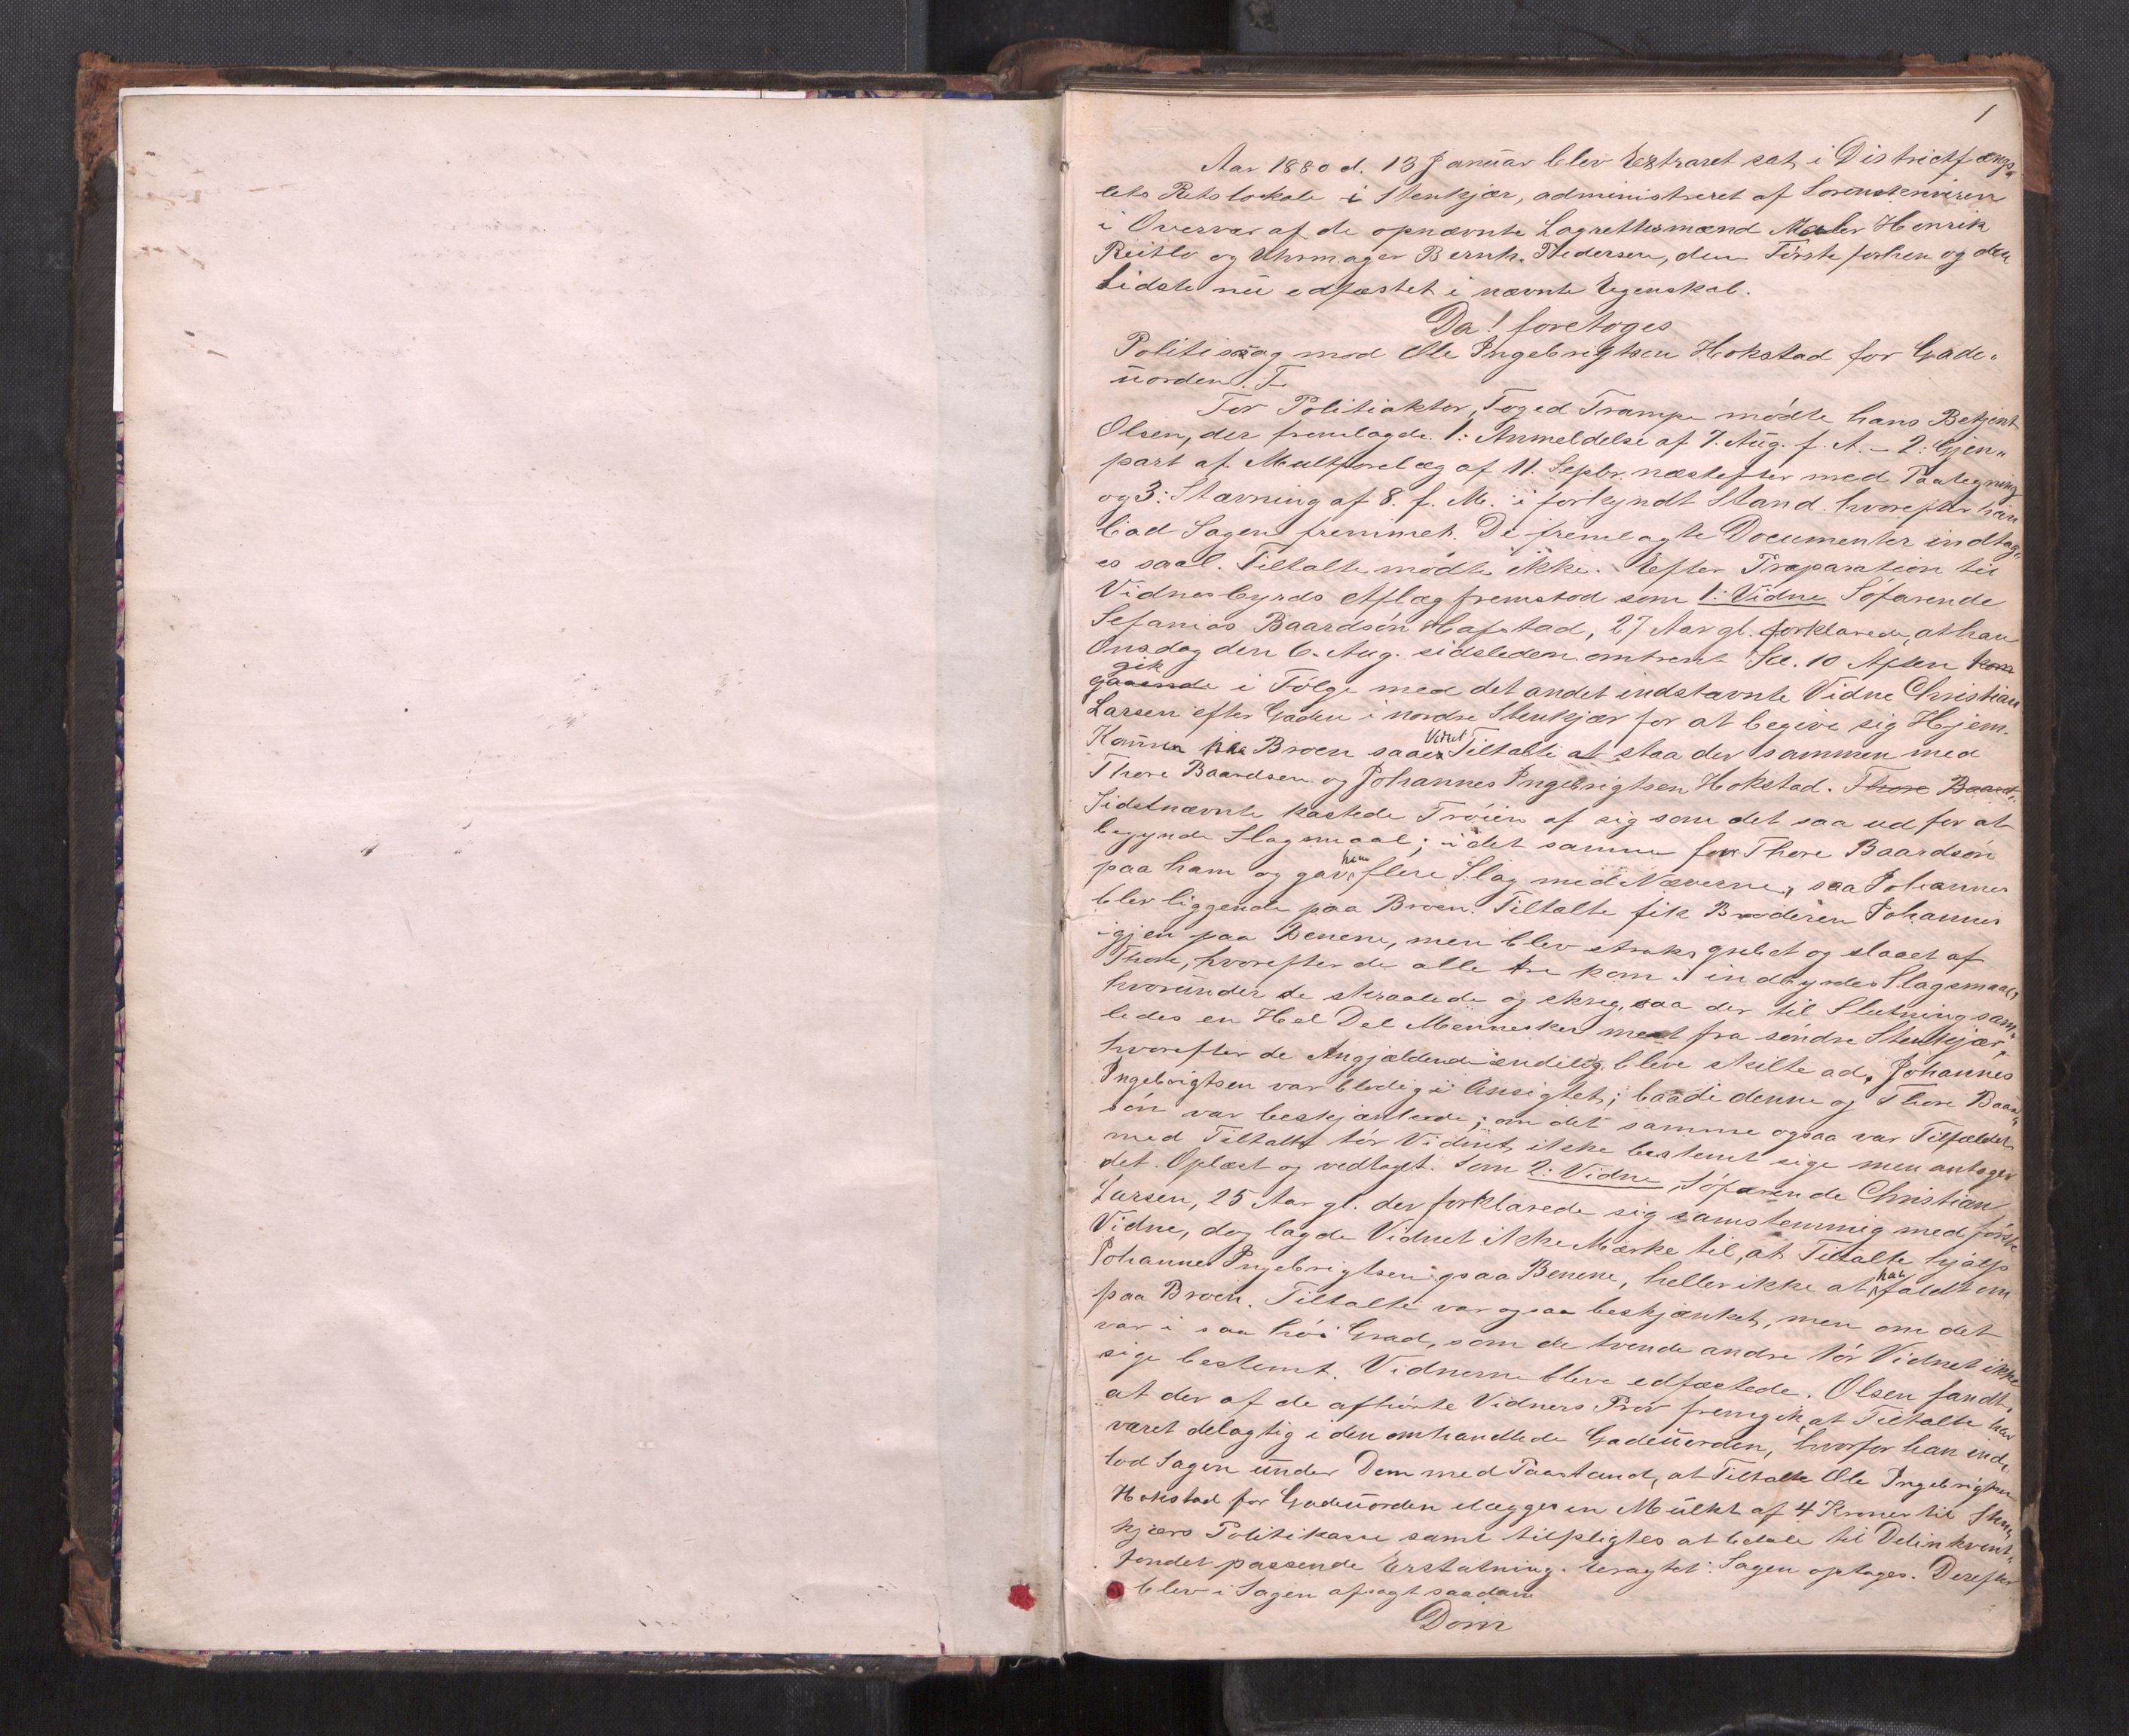 1
Aar 1880 d. 13 Januar blev Extraret sat i Districtsfængs„
lets Retslokale i Stenkjær, administreret af Sorenskriveren
i Overvær af de opnævnte Lagrettesmænd Maler Henrik
og Uhrmager Bernh. Pedersen, den Første forhen og den
Sidste nu edfæstet i nævnte Egenskab.
Da! foretoges
Politisag mod Ole Ingebrigtsen Hokstad for Gade„
uorden.
For Politiaktor, Foged Trampe mødte hans Betjent
Olsen, der fremlagde 1: Anmeldelse af 7. Aug. f. A. – 2: Gjen„
part af Mulktforelæg af 11. Sepbr. næstefter med Paategning
og 3: Stævning af 8. f. M. i forkyndt Stand. hvorefter han
bad Sagen fremmet. De fremlagte Documenter indtag„
es saal. Tiltalte mødte ikke. Efter Præparation til
Vidnesbyrds Aflæg fremstod som 1: Vidne Søfarende
Sefanias Baardsøn Hafstad, 27 Aar gl. forklarede, at han
Onsdag den 6. Aug. sidstleden omtrent Kl. 10 Aften kom
gik
gaaende i Følge med det andet indstævnte Vidne Christian
Larsen efter Gaden i nordre Stenkjær for at begive sig Hjem.
Vidnet
Kommen til Broen saaes Tiltalte at staa der sammen med
Thore Baardsen og Johannes Ingebrigtsen Hokstad. Thore Baard„
Sidstnævnte kastede Trøien af sig som det saa ud for at
begynde Slagsmaal; i det samme for Thore Baardsøn
ham
paa ham og gav flere Slag med Næverne, saa Johannes
blev liggende paa Broen. Tiltalte fik Broderen Johannes
igjen paa Benene, men blev straks grebet og slaaet af
Thore, hvorefter de alle tre kom i indbyrdes Slagsmaal,
hvorunder de skraalede og skreg, saa der til Slutning sam„
ledes en Hel Del Mennesker mest fra søndre Stenkjær,
hvorefter de Angjældende endelig bleve skilte ad. Johannes
Ingebrigtsen var blodig i Ansigtet; baade denne og Thore Baard„
søn var beskjænkede; om det samme ogsaa var Tilfældet
med Tiltalte tør Vidnet ikke bestemt sige men antager
det. Oplæst og vedtaget. Som 2: Vidne, Søfarende Christian
Larsen, 25 Aar gl. der forklarede sig samstemmig med første
Vidne, dog lagde Vidnet ikke Mærke til, at Tiltalte hjalp
han
Johannes Ingebrigtsen paa Benene, heller ikke at faldt om
paa Broen. Tiltalte var ogsaa beskjænket, men om det
var i saa høi Grad, som de tvende andre tør Vidnet ikke
sige bestemt. Vidnerne bleve edfæstede. Olsen fandt,
at der af de afhørte Vidners Prov fremgik, at Tiltalte har
været delagtig i den omhandlede Gadeuorden, hvorfor han ind„
lod Sagen under Dom med Paastand, at Tiltalte Ole Ingebrigtsen
Hokstad for Gadeuorden ilægges en Mulkt af 4 Kroner til Sten„
kjærs Politikasse samt tilpligtes at betale til Delinkvent„
fondet passende Erstatning. Eragtet: Sagen optages. Derefter
blev i Sagen afsagt saadan
Dom